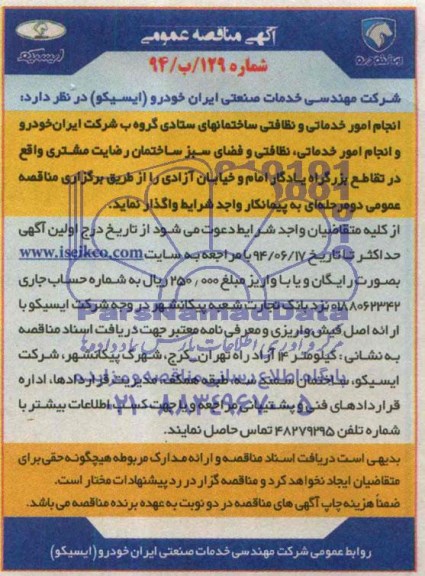 آگهی مناقصه عمومی
ایسیکو
شماره ۱۲۹/ب/۹۴
شرکت مهندسی خدمات صنعتی ایران خودرو (ایسیکو) در نظر دارد:
انجام امور خدماتی و نظافتی ساختمانهای ستادی گروه ب شرکت ایران‌خودرو
و انجام امور خدماتی، نظافتی و فضای سبز ساختمان رضایت مشتری واقع
در تقاطع بزرگراه یادگار امام و خیابان آزادی را از طریق برگزاری مناقصه
عمومی دومرحله‌ای به پیمانکار واجد شرایط واگذار نماید.
از کلیه متقاضیان واجد شرایط دعوت می شود از تاریخ درج اولین آگهی
حداکثر تا تاریخ ۹۴/۰۶/۱۷ با مراجعه به سایت www.iseikco.com
بصورت رایگان و یا با واریز مبلغ ۲۵۰/۰۰۰ ریال به شماره حساب جاری
۰۱۸۸۰۶۲۳۴۲ نزد بانک تجارت شعبه پیکانشهر در وجه شرکت ایسیکو با
ParsNamadData
ارائه اصل فیش واریزی و معرفی نامه معتبر جهت دریافت اسناد مناقصه
به نشانی: کیلومتر ۱۴ آزاد راه تهران_کرج، شهرک پیکانشهر، شرکت
ایسیکو، ساختمان سمند سه، طبقه همکف، مدیریت قراردادها، اداره
پایگاه اطلاع رسانی مناقصه و مزایده
قراردادهای فنی و پشتیبانی مراجعه و یا جهت کسب اطلاعات بیشتر با
۰۲۱-۸۸۳۴۹۶۷۰-۵
شماره تلفن ۴۸۲۷۹۲۹۵ تماس حاصل نمایند.
بدیهی است دریافت اسناد مناقصه و ارائه مدارک مربوطه هیچگونه حقی برای
متقاضیان ایجاد نخواهد کرد و مناقصه گزار در رد پیشنهادات مختار است.
ضمناً هزینه چاپ آگهی های مناقصه در دو نوبت به عهده برنده مناقصه می باشد.
روابط عمومی شرکت مهندسی خدمات صنعتی ایران خودرو (ایسیکو)